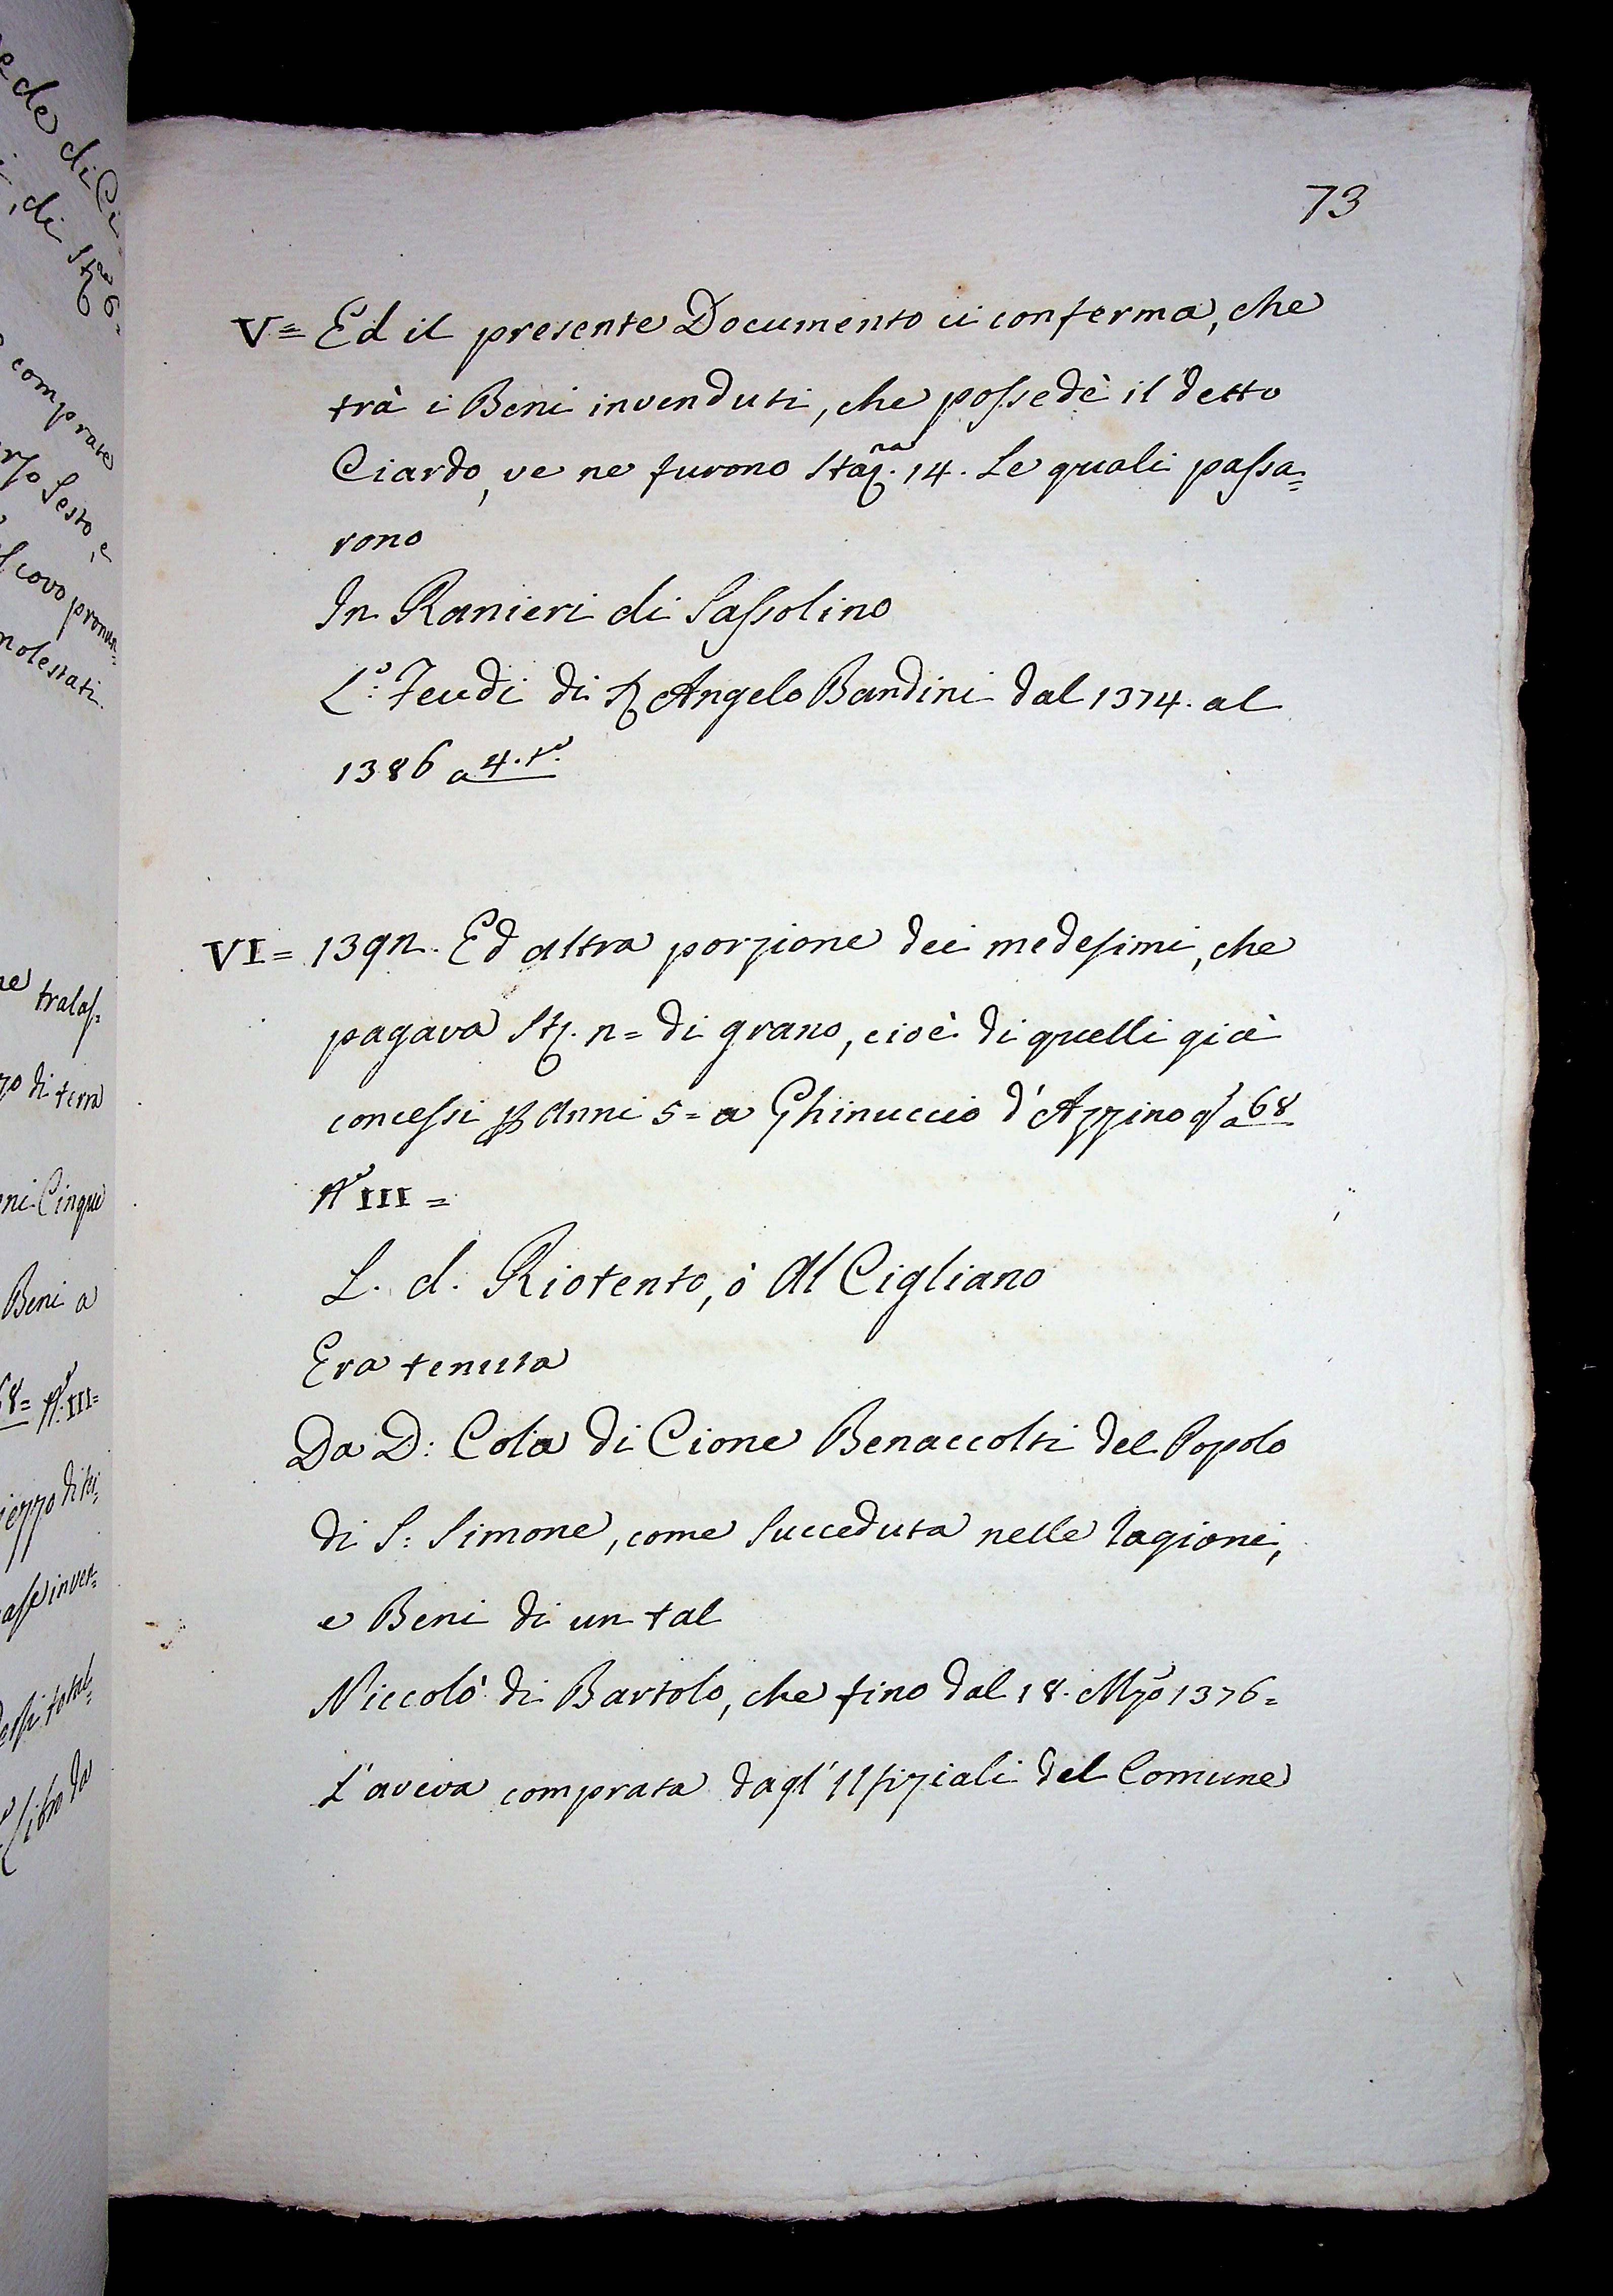 73
V= Ed il presente Documento ci conferma, che
trà i Beni invenduti, che possedè il detto
Ciardo, ve ne furono Staj.na 14. Le quali passa=
rono
In Ranieri di Sassolino
L.o Feudi di Angelo Bandini dal 1374. al
1386 a 4. t.o
VI= 1392. Ed altra porzione dei medesimi, che
pagava Stj. 2= di grano, cioè di quelli già
concessi Anni 5= a Ghinuccio d'Azzino a 68
No III=
L. d. Riotento, ò Al Cigliano
Era tenuta
Da D: Cola di Cione Benaccolti del Popolo
di S: Simone, come succeduta nelle ragioni,
e Beni di un tal
Niccolò di Bartolo, che fino dal 18. Mzo 1376=
L'aveva comprata dagl' Ufiziali del Comune